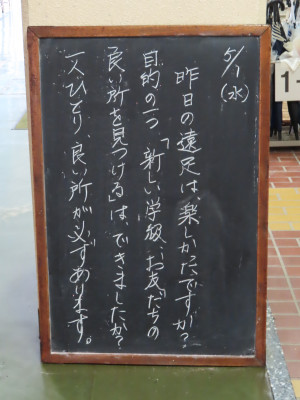 5/1(水)
昨日の遠足は、楽しかたですか?
目的の一つ、「新しい学級、お友だちの
良い所を見つける」は、できましたか?
一人ひとり、良い所が必ずあります。
1